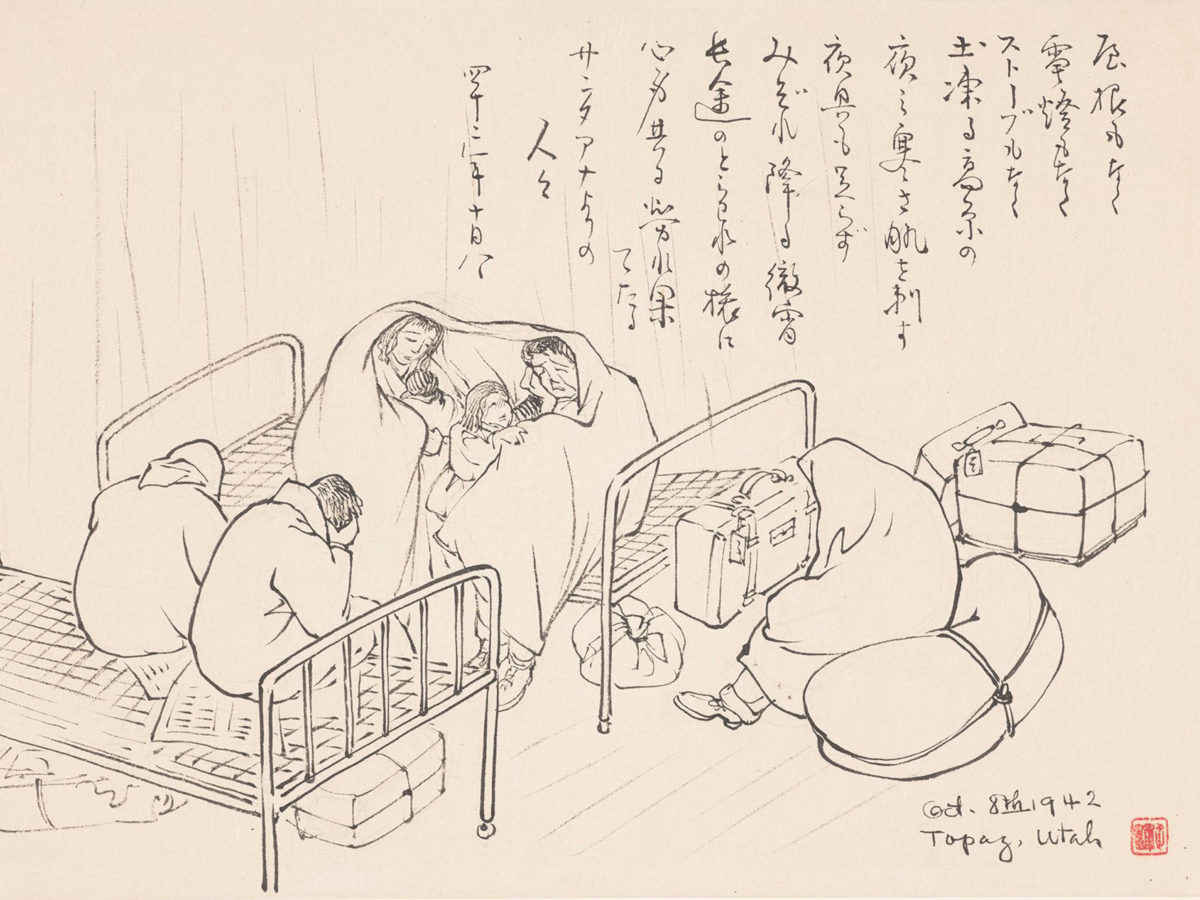 屋根もなく
電燈もなく
ストーブもなく
土凍る高原の
夜 寒さ肌を刺す
夜具も足らず
みぞれ降る徹宵
長途のとらはれの旅に
心身共る労れ果
てたる
サンタアナよりの
人々
四十二年十月八
Oct. 8th 1942
Topaz, Utah